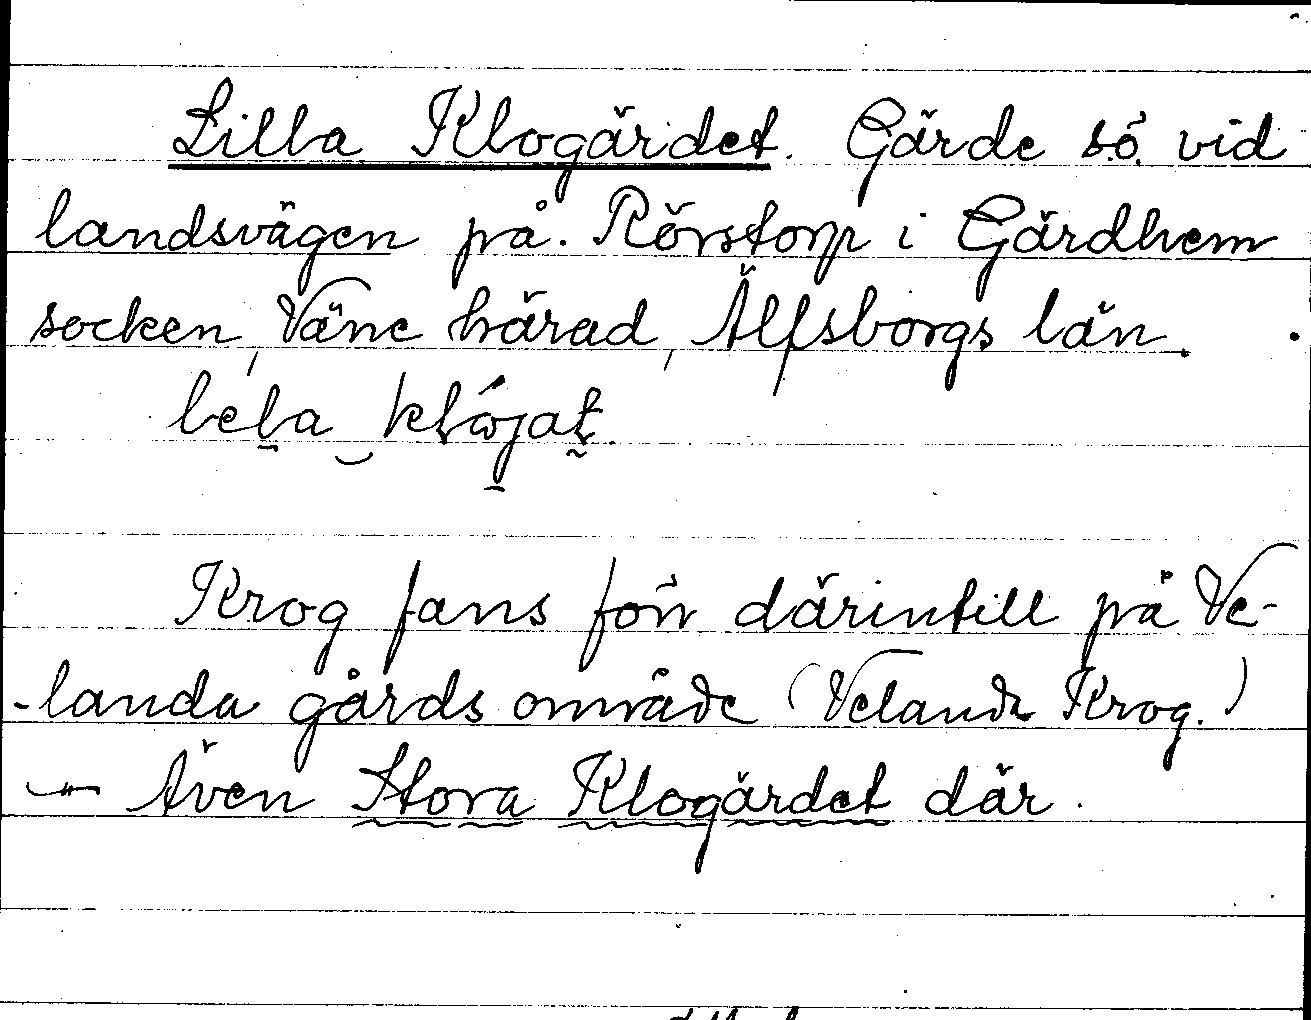 Lilla Klogärdet. Gärde s.ö. vid
landsvägen på. Rörstorp i Gärdhem
socken, Väne härad, Älfsborgs län.
Krog fans förr därintill på Ve-
-landa gårds område (Velanda Krog.)
— Även Stora Klogärdet där.